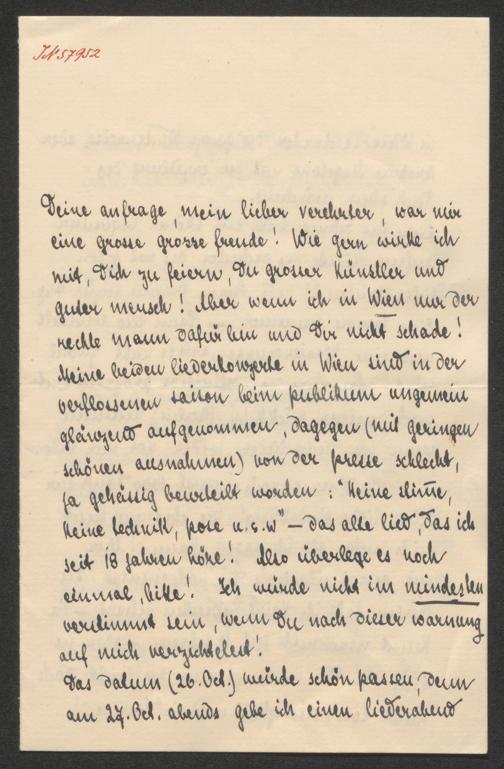 IN 57952
Deine anfrage, mein lieber verehrter, war mir
eine grosse grosse freude! Wie gern wirke ich
mit, Dich zu feiern, Du grosser Künstler und
guter mensch! Aber wenn ich in Wien nur der
rechte mann dafür bin und Dir nicht schade!
Meine beiden liederkonzerte in Wien sind in der
verflossenen saison beim publikum ungemein
glänzend aufgenommen, dagegen (mit geringen
schönen ausnahmen) von der presse schlecht,
ja gehässig beurteilt worden: "Keine stim̄e,
Keine technik, pose u.s.w" – das alte lied, das ich
seit 18 jahren höre! Also überlege es noch
einmal, bitte! Ich würde nicht im mindesten
verstimmt sein, wenn Du nach dieser warnung
auf mich verzichtetest!
Das datum (26. Oct.) würde schön passen, denn
am 27. Oct. abends gebe ich einen liederabend